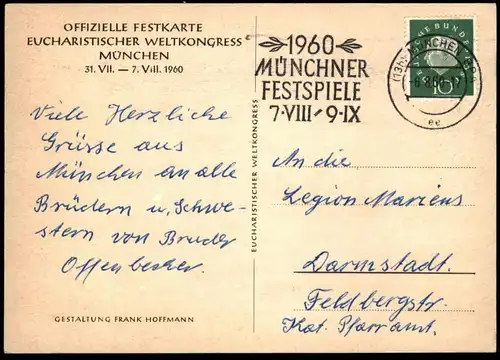 OFFIZIELLE FESTKARTE
EUCHARISTISCHER WELTKONGRESS
MÜNCHEN
31. VII. — 7. VIII. 1960
Viele Herzliche
Grüsse aus
München an alle
Brüdern u. Schwe-
stern von Bruder
Offenbecher.
GESTALTUNG FRANK HOFFMANN
EUCHARISTISCHER WELTKONGRESS
1960
MÜNCHNER
FESTSPIELE
7·VIII–9·IX
MÜNCHEN
ee
10
An die
Legion Mariens
Darmstadt.
Feldbergstr.
Kat. Pfarramt.